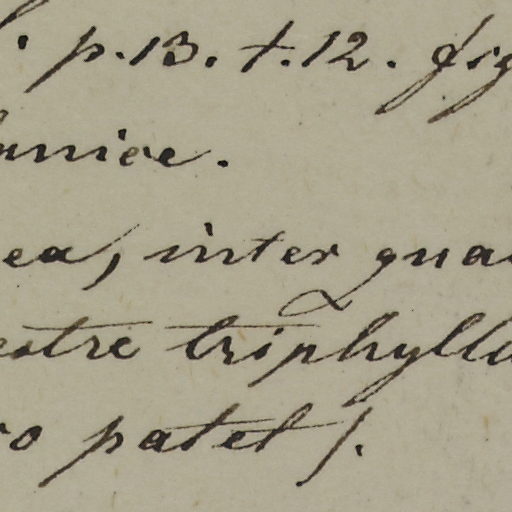 . p. 13. t. 12. fig
nniae.
ea, inter qua
estre triphylla
ro patet).